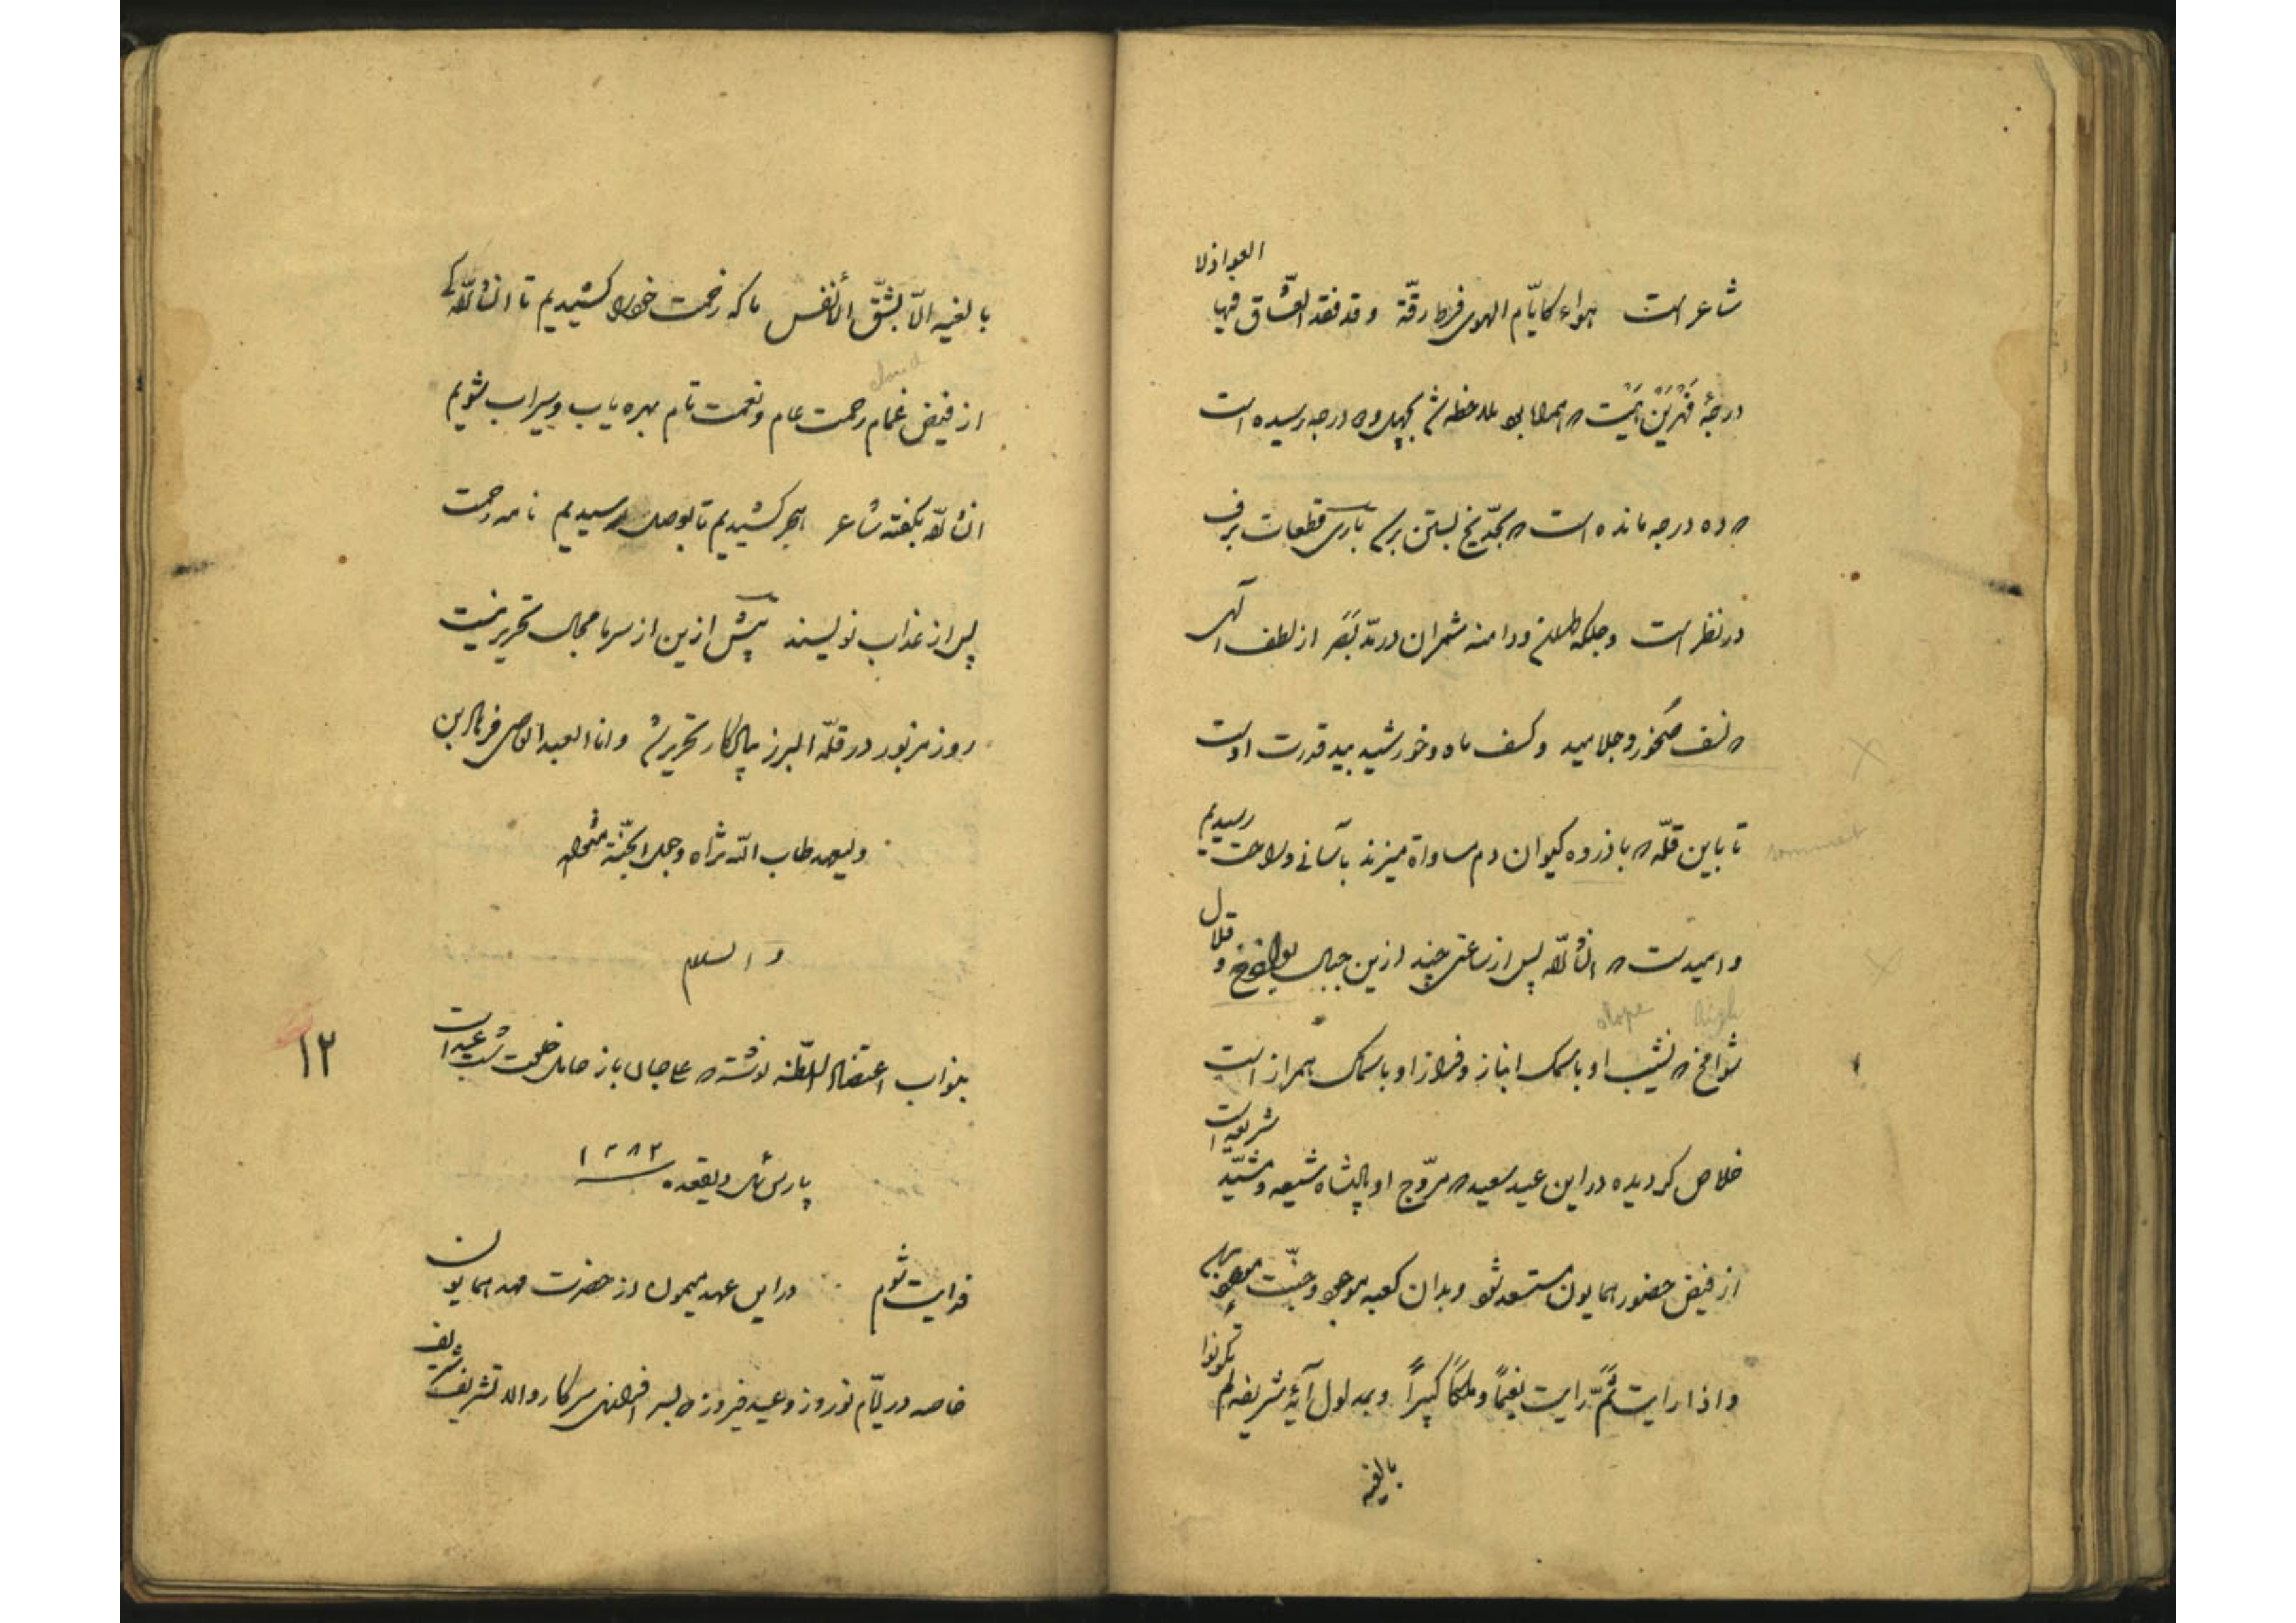 شاعر است هواء کایّام الهوی فرط رقّة و قد فقد العشّاق فیها العواذلا
درجهٔ است که ملاحظه شد بچهل و درجه رسیده است
که ده درجه مانده است که بحدّ یخ بستن برسد باری قطعات برف
در نظر است و جلگه و دامنه شمران در مدّ بصر از لطف الهی
که نسف صخور و جلامید و کسف ماه و خورشید بید قدرت اوست
تا باین قلّه که با ذروه کیوان دم مساواة میزند بآسانی و راحت رسیدیم
و امیدست که انشاءلله پس از ساعتی چند ازین جبال بواذخ و قلال
شوامخ که نشیب او با سمک انباز و فراز او با سماک همراز است
خلاص کردیده در این عید سعید که مروّج او پادشاه شیعه و مشیّد شریعت است
از فیض حضور همایون مستسعد شود و بدان کعبه موجود و جنّت
و اذا رایت ثمّ رایت نعیماً و ملکاً کبیراً و بمدلول آیهٔ شریفه لم تکونوا
بالغیه
high
slope
summit
بالغیه الّا بشقّ الأنفس ما که زحمت خود را کشیدیم تا انشاءلله کی
از فیض غمام رحمت عام و نعمت تام بهره یاب و سیراب شویم
cloud
انشاءلله بگفته شاعر هجر کشیدیم تا بوصل رسیدیم نامه رحمت
پس از عذاب نویسند بیش ازین از سرما مجال تحریر نیست
روز مزبور در قلّه البرز تحریر شد و انا العبد العاصی فرهاد بن
ولیعهد طاب الله ثراه و جعل الجنّة مثواه
و السلام
۱۲
بنواب اعتضاد السلطنه نوشته که حاجال باز حامل خلعت شب عید است
پارس ئیل ذیقعده ۱۲۸۲
فدایت شوم در این عهد میمون از حضرت مهد همایون
خاصه در ایّام نوروز و عید فیروز که بسر افرازی سرکار والا تشریف شریف